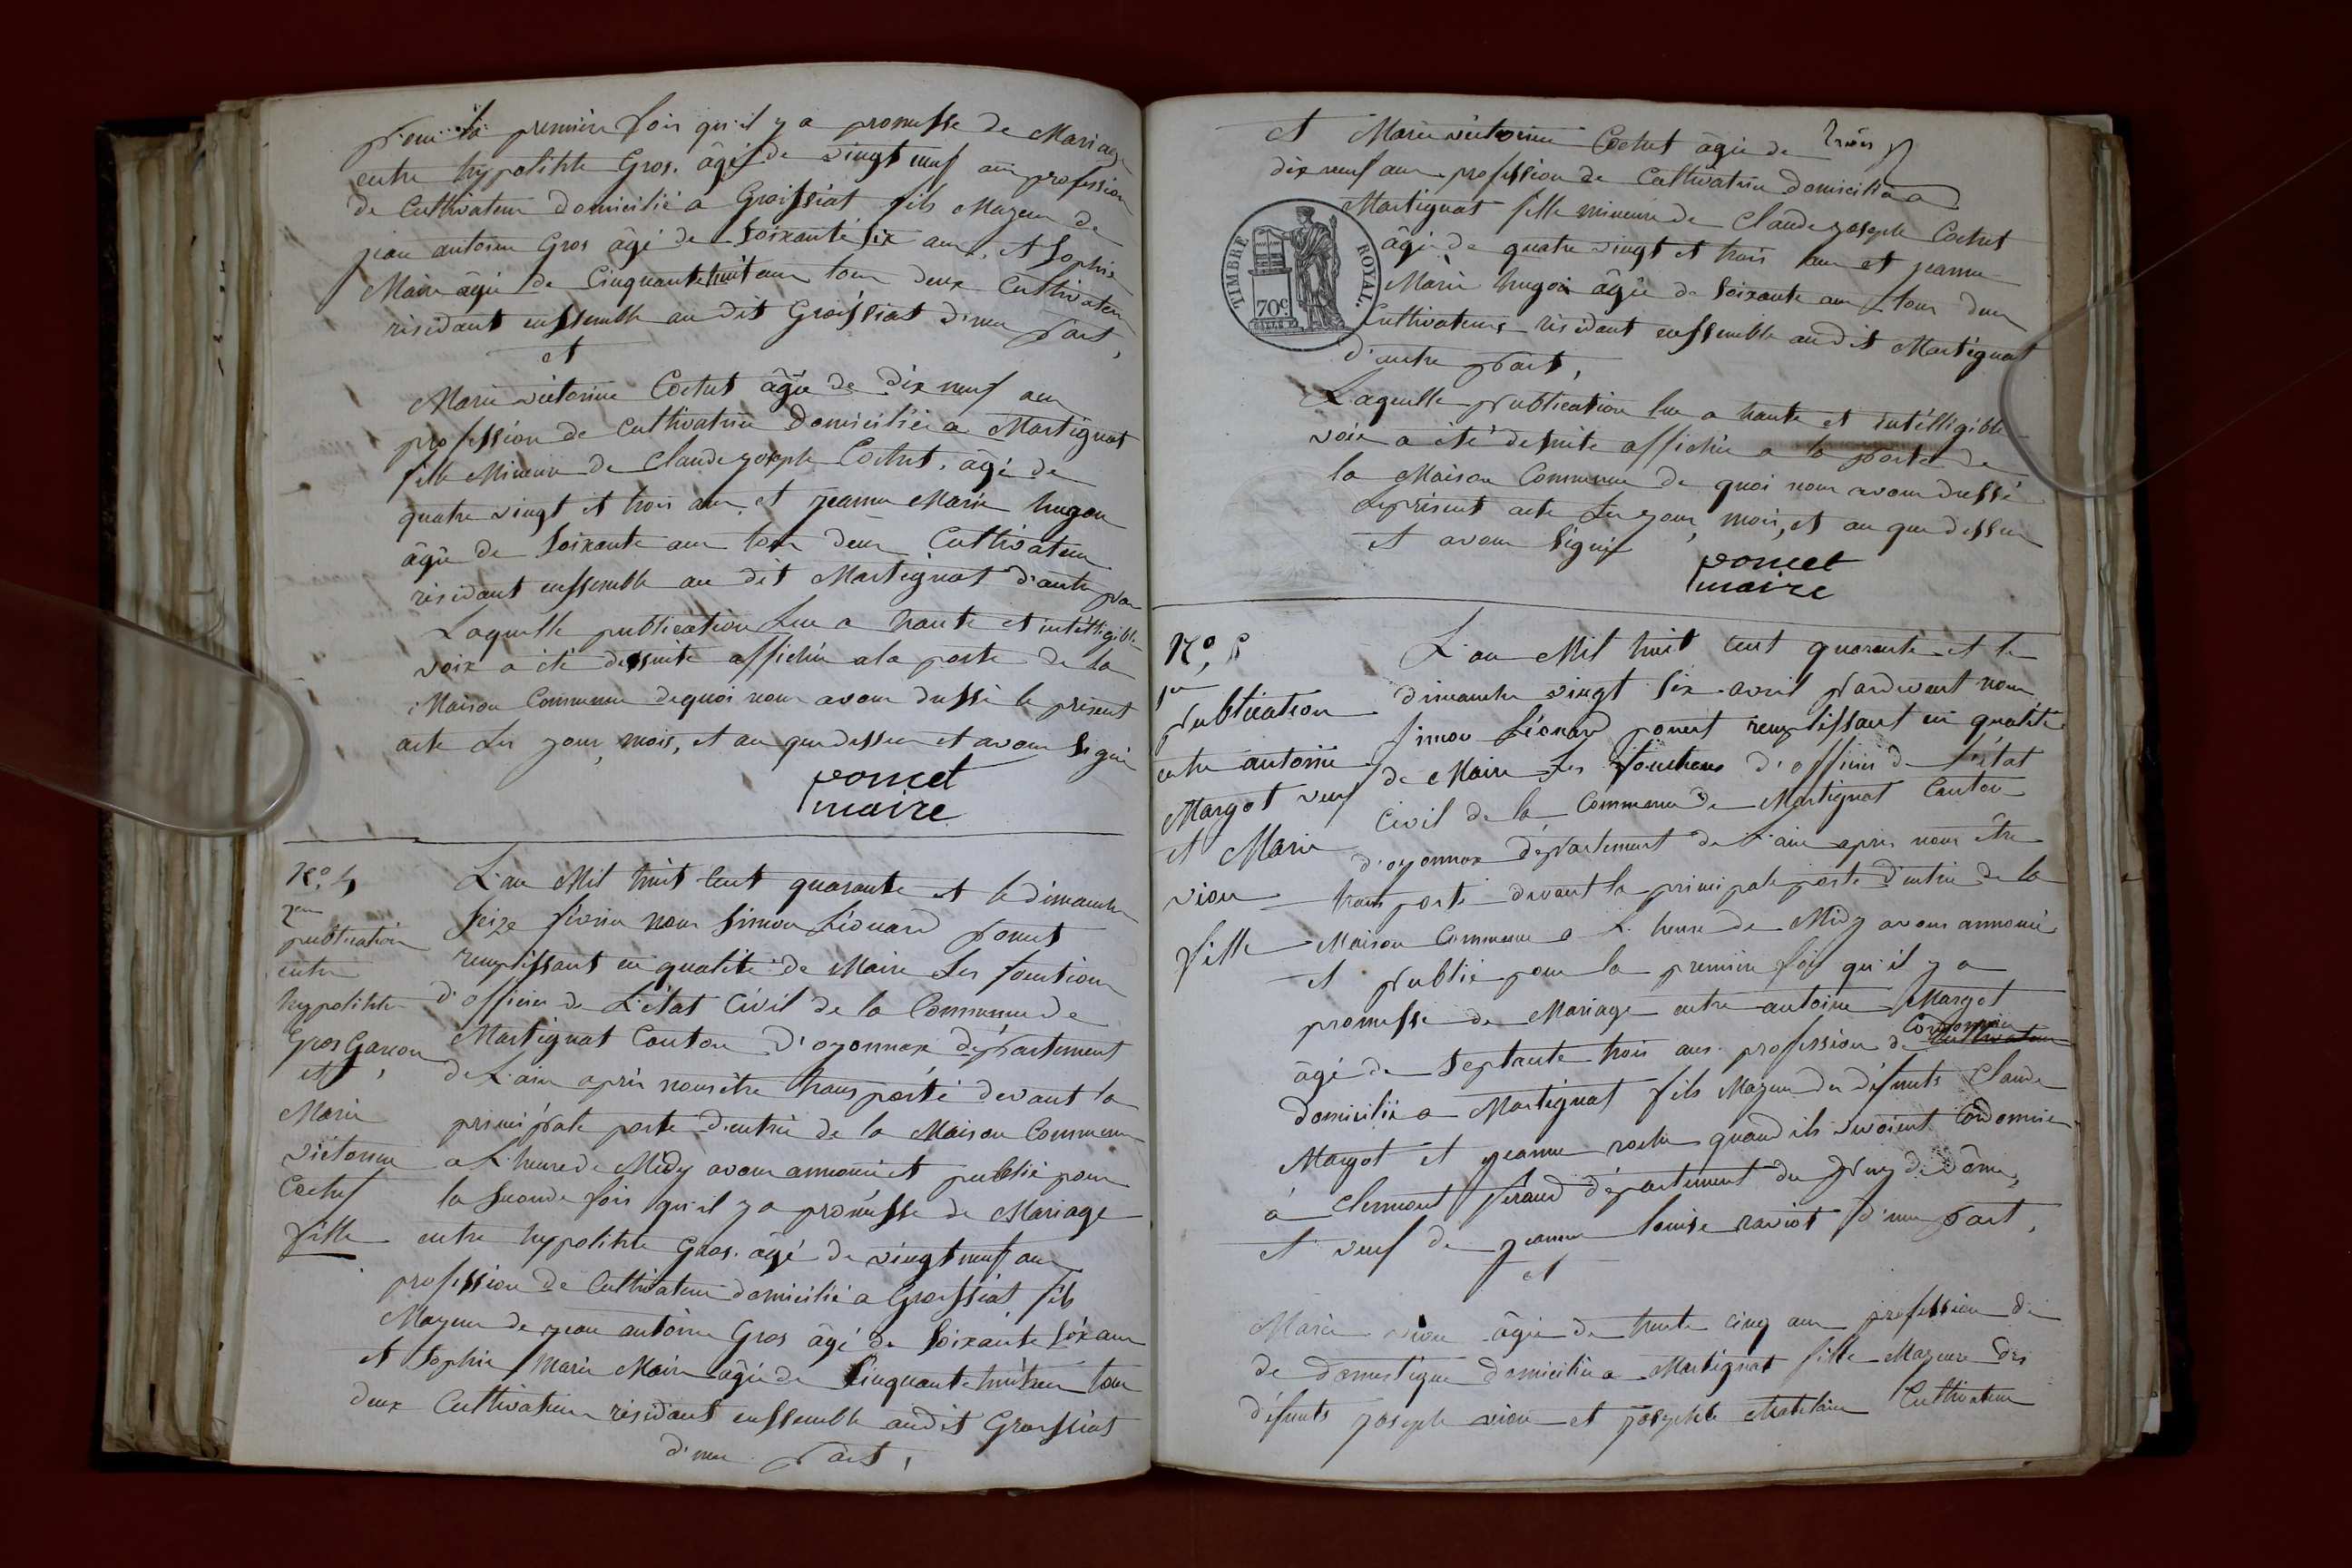 pour la première fois qu'il y a promesse de Mariage
entre hypolitte Gros. âgé de vingt neuf ans profession
de Cultivateur domicilié a Groissiat fils Mageur de
jean antoine Gros âgé de soixante six ans, et Sophie
Maire âgée de Cinquante huit ans tous deux Cultivateurs
résidant enssemble au dit Groissiat d'une part,
et
Marie victorine Cochet âgée de dix neuf ans
profession de Cultivatrice Domiciliée a Martignat
fille Mineure de Claude joseph Cochet, âgé de
quatre vingt et trois ans, et jeanne Marie hugon
âgée de soixante ans tous deux Cultivateurs
résidant enssemble au dit Martignat d'autre par
Laquelle publication Lue a haute et intélligible
voix a été dessuite affichée a la porte de la
Maison Commune dequoi nous avons dressé le présent
acte Les jour, mois, et an que dessus et avons signé
poncet
maire
N.° 4
2em
publication
entre
hypolitte
Gros Garcon
et
Marie
victorine
Cochet
fille
L'an Mil huit Cent quarante et le dimanche
seize février nous simon Léonard poncet
remplissant en qualité de Maire Les fonctions
d'officier de L'état Civil de la Commune de
Martignat Canton d'oyonnax département
de L'ain après nous être transporté devant la
principale porte d'entrée de la Maison Commune
a L'heure de Midy avons annoncé et publié pour
la seconde fois qu'il y a promesse de Mariage
entre hypolitte Gros. âgé de vingt neuf ans
profession de Cultivateur domicilié a Groissiat, fils
Mageur de jean antoine Gros âgé de soixante six ans
et sophie Marie Maire âgée de Cinquante huit ans tous
deux Cultivateurs résidant enssemble audit Groissiat
d'une part,
trois
et Marie victorine Cochet âgée de
dix neuf ans profession de Cultivatrice domiciliée a
Martignat fille mineure de Claude joseph Cochet
âgé de quatre vingt et trois ans et jeanne
Marie hugon âgée de soixante ans tous deux
Cultivateurs résidant enssemble au dit Martignat
d'autre part,
TIMBRE ROYAL.
70c
Laquelle publication lue a haute et intélligible
voix a été desuite affichée a la porte de
la Maison Commune de quoi nous avons dressé
Le présent acte Les jour, mois, et an que dessus
et avons signé
poncet
maire
N.°
1re
publication
entre antoine
Margot veuf
et Marie
vion
fille
L'an Mil huit cent quarante et le
dimanche vingt six avril pardevant nous
simon Léonard poncet remplissant en qualité
de Maire Les fonctions d'officier de L'état
Civil de la Commune de Martignat Canton
d'oyonnax département de L'ain après nous être
transporté devant la principale porte d'entrée de la
Maison Commune a L'heure de Midy avons annoncé
et publié pour la première fois qu'il y a
promesse de Mariage entre antoine Margot
âgé de septante trois ans profession de Cordonnier
domicilié a Martignat fils Mageur des défunts Claude
Margot et jeanne roche quand ils vivoient Cordonnier
à Clermont ferand département du puy de dôme,
et veuf de jeanne louise raviot d'une part,
et
Marie vion âgée de trente cinq ans profession de
de domestique domiciliée a Martignat fille Mageure des
défunts joseph vion et josephte chatelain Cultivateurs